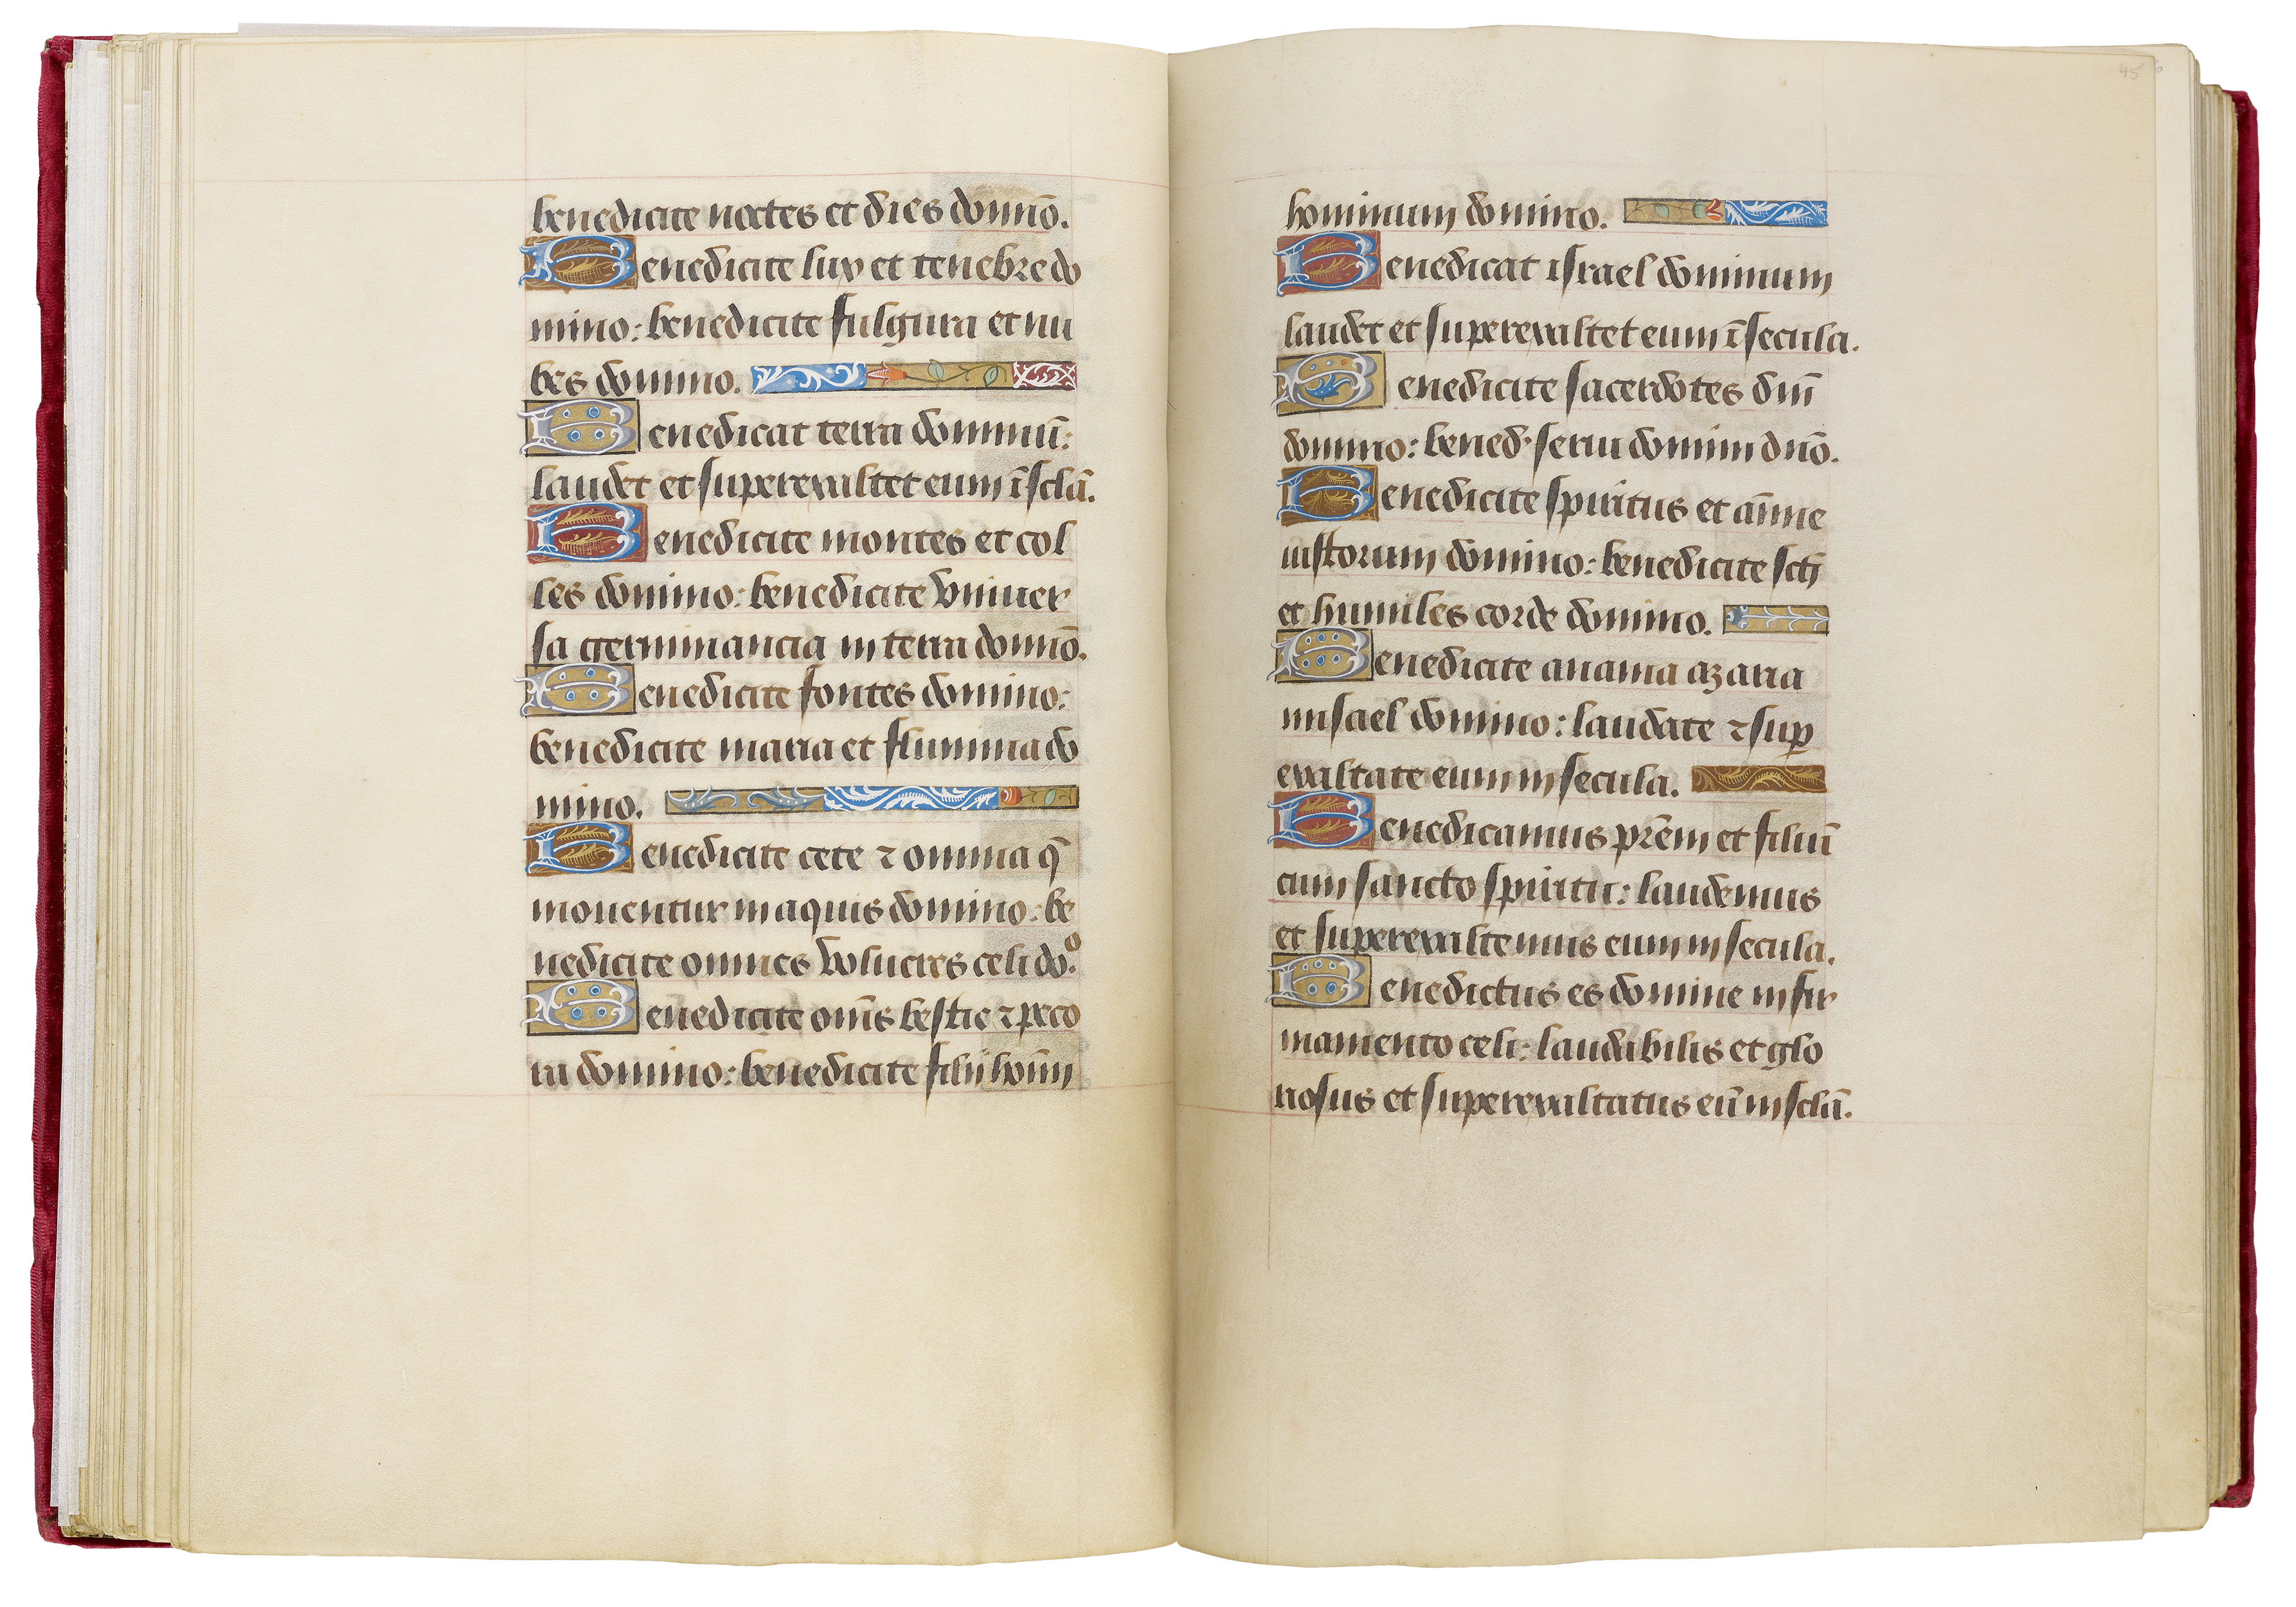 benedicite noctes et dies domīo.
Benedicite lux et tenebre do
mino: benedicite fulgura et nu
bes domino.
Benedicat terra dominū:
laudet et superexaltet eum ī sclā.
Benedicite montes et col
les domino: benedicite vniuer
sa germinancia in terra domīo.
Benedicite fontes domino:
benedicite maria et flumina do
mino.
Benedicite cete ⁊ omnia q̄
mouentur in aquis domino: be
nedicite omnes volucres celi do.º
Benedicite om̄s bestie ⁊ peco
ra domino: benedicite filij hoīm
45
hominum domino.
Benedicat israel dominum
laudet et superexaltet eum ī secula.
Benedicite sacerdotes dn̄i
domino: bened. serui domini dn̄o.
Benedicite spiritus et aīme
iustorum domino: benedicite sctī
et humiles corde domino.
Benedicite anania azaria
misael domino: laudate ⁊ suꝑ
exaltate eum in secula.
Benedicamus prēm et filiū
cum sancto spiritu: laudemus
et superexaltemus eum in secula.
Benedictus es domine in fir
mamento celi: laudabilis et glo
riosus et superexaltatus eū in sclā.